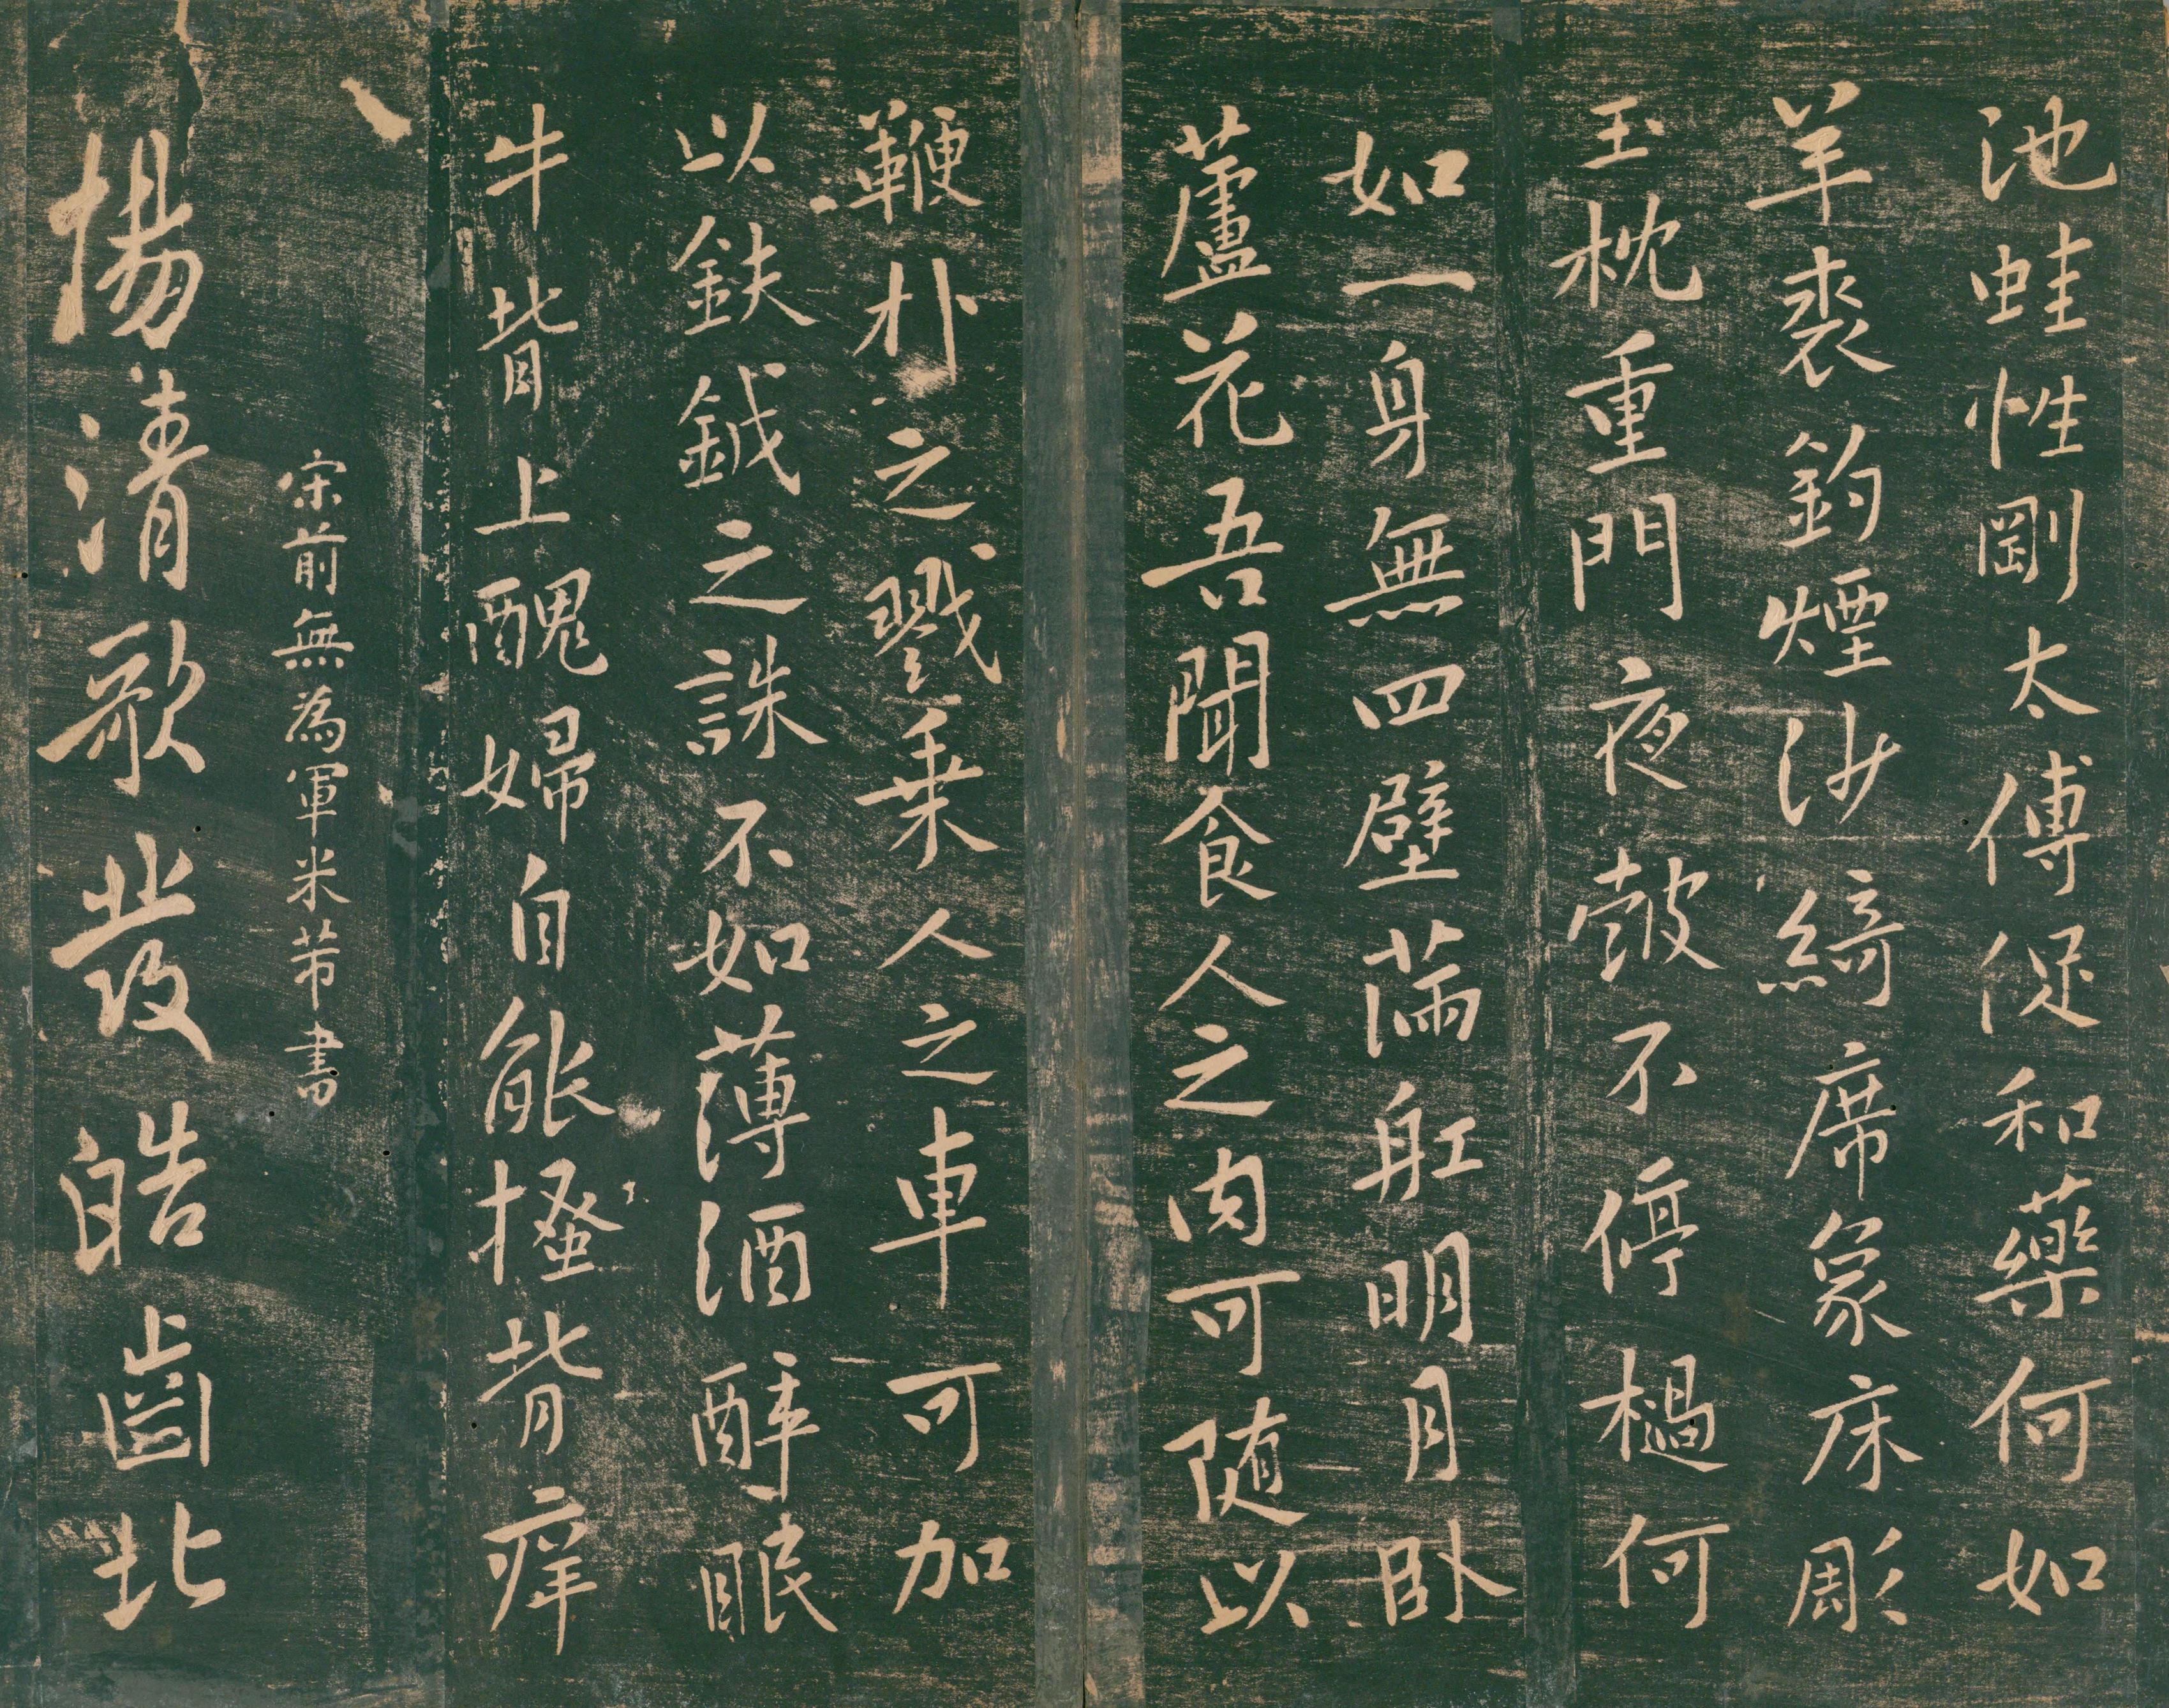 池蛙性剛太傅促和藥何如
羊裘釣煙沙綺席象床彫
玉枕重門夜皷不停檛何
如一身無四壁滿舡明月卧
蘆花吾聞食人之肉可随以
鞭朴之戮乗人之車可加
以鈇鉞之誅不如薄酒醉眠
牛背上醜婦自能搔背痒
宋前無為軍米芾書
揚清歌發皓齒北